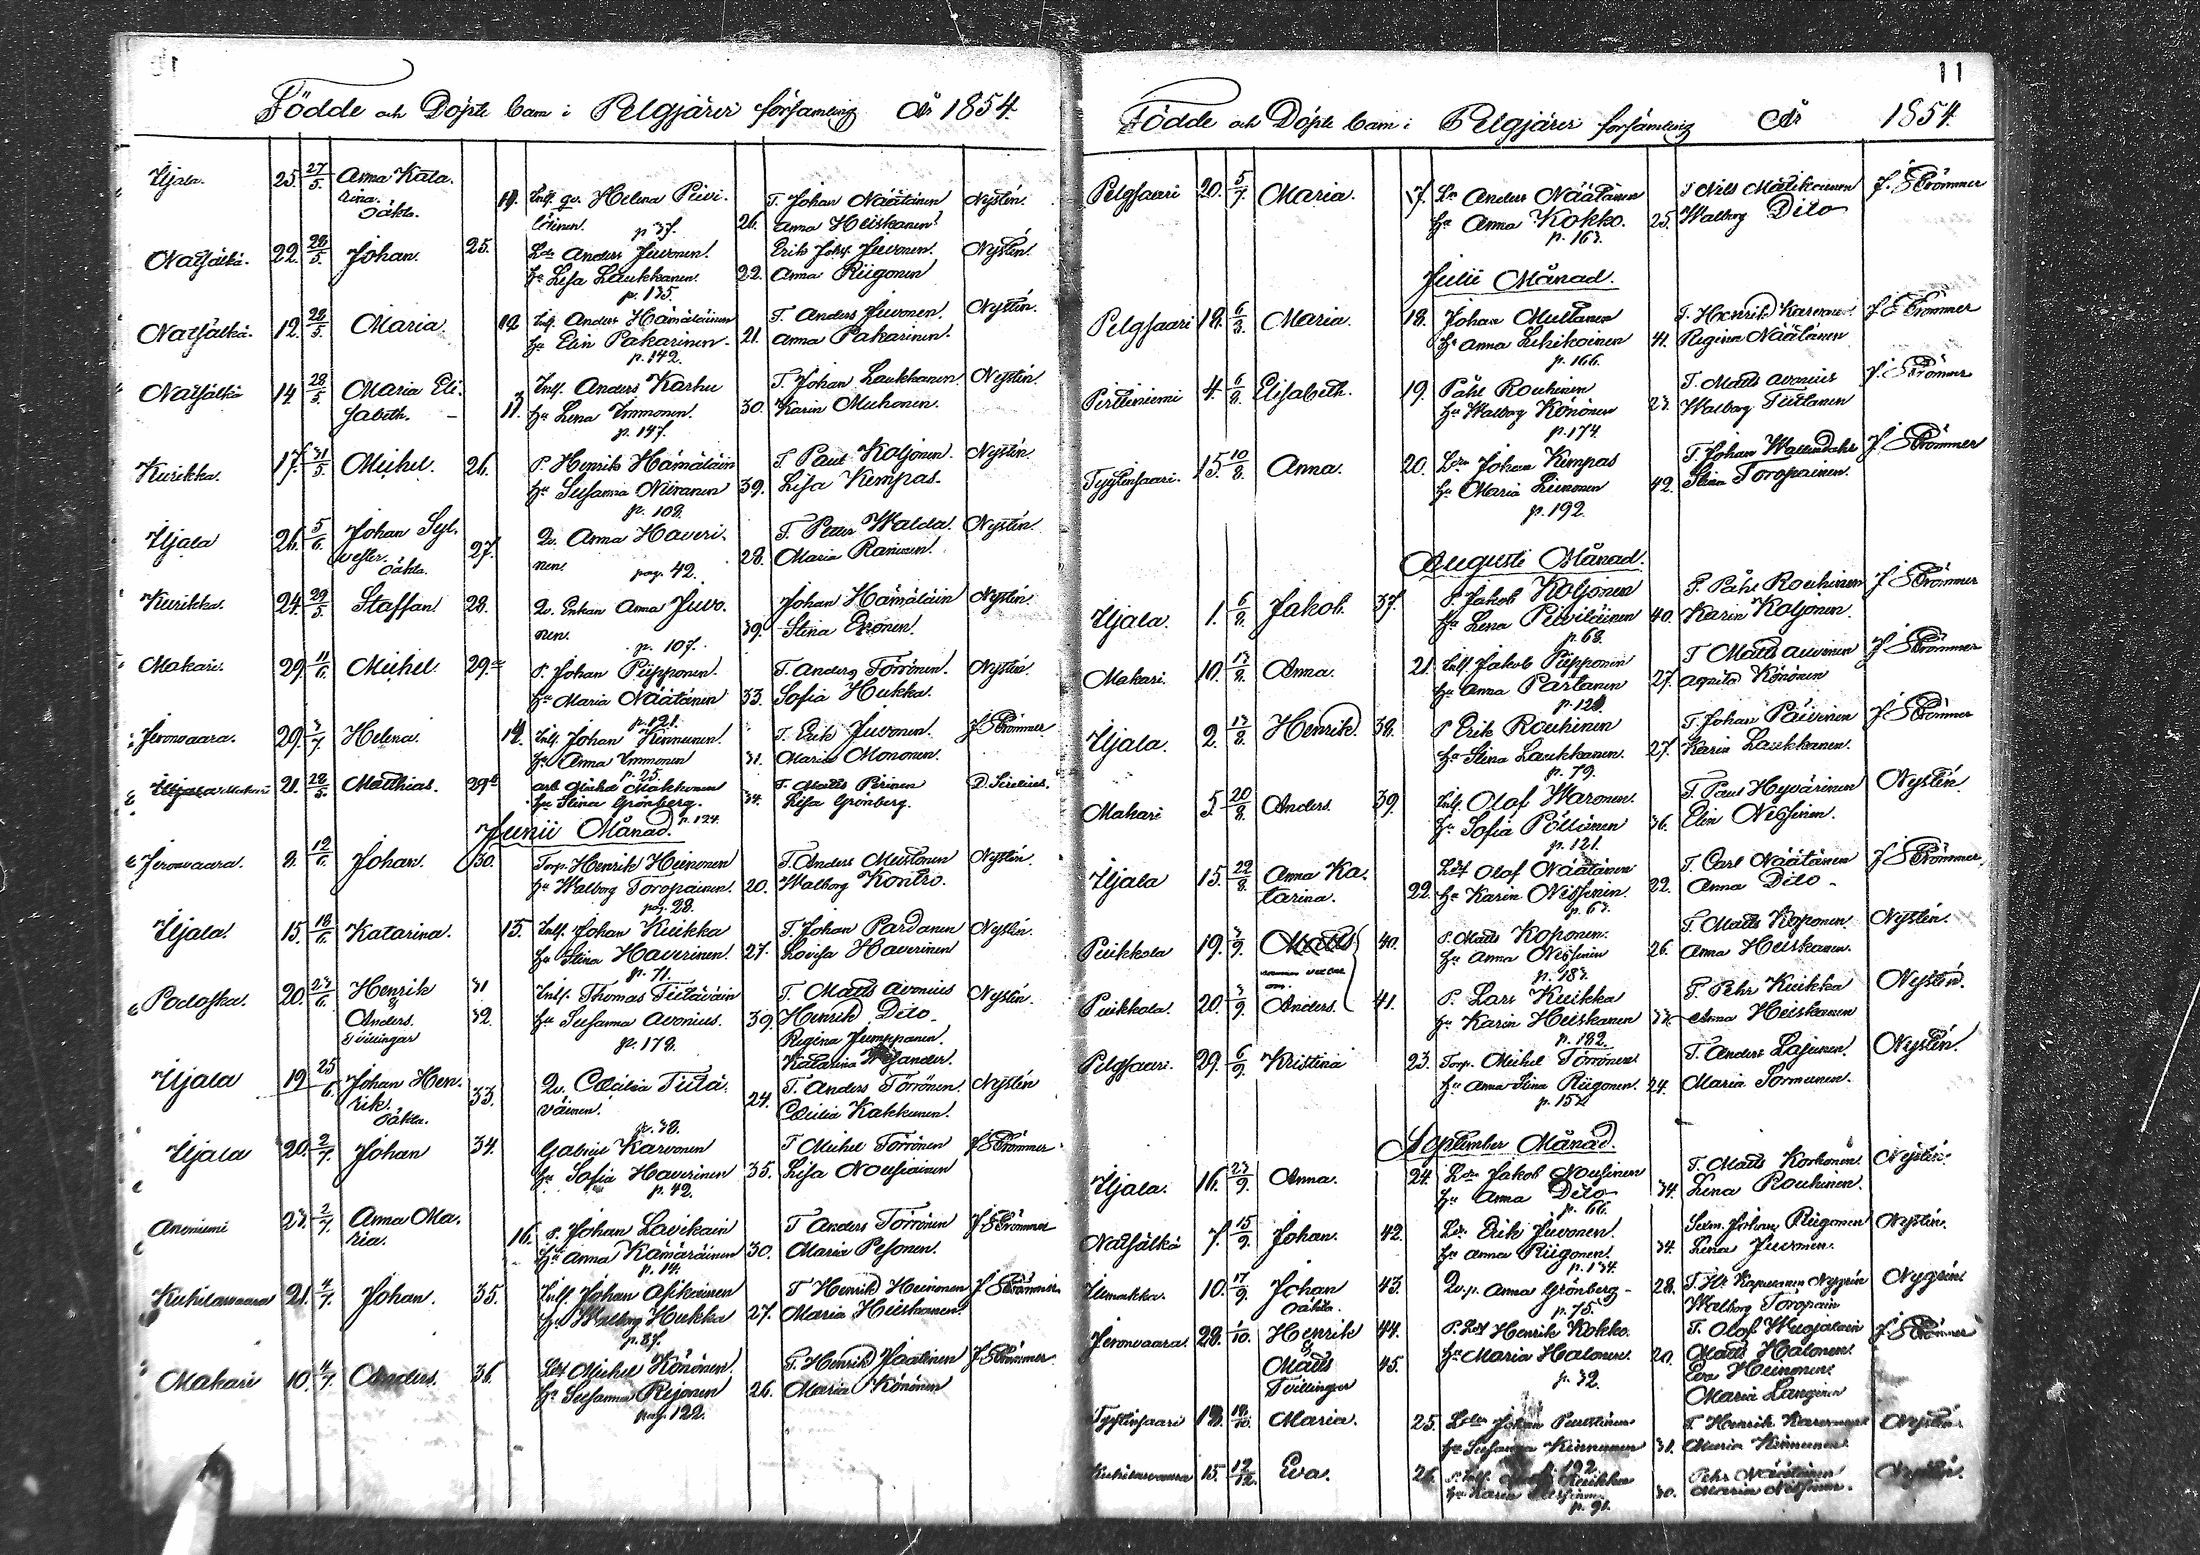 Födde och Döpte barn i Pelgjärvi församling År 1854.
Ujala. 25. 27/5. Anna Kata. 19. Inh. qv. Helena Pivi. T. Johan Näätänen Nystén.
rina. läinen. p. 37. 26. Anna Heiskanen
oäkta.
Natfälkä. 22. 28/5. Johan. 25. Lds Anders Juvonen. Erik Johs Juvonen. Nystén.
hu Lisa Laukkanen. 22. Anna Riigonen
p. 135.
Natfälkä. 12. 28/5. Maria. Inh. Anders Hämäläinen T. Anders Juvonen. Nystén.
hu Elin Pakarinen. 21. Anna Pakarinen.
p. 142.
Natfälkä 14. 28/5. Maria Eli. Inh. Anders Karhu T. Johan Laukkanen. Nystén.
sabeth. hu Lena Immonen. 30. Karin Muhonen.
p. 147.
Kurikka. 17. 31/5. Michel. 26. P. Henrik Hämäläin T. Paul Koljonen. Nystén.
hu Susanna Niiranen 39. Lisa Kempas.
p. 108.
Ujala 26. 5/6. Johan Syl. 27. Qv. Anna Haveri. T. Petter Walda. Nystén.
vester. nen. pag. 42. 28. Maria
oäkta.
Kurikka. 24. 29/5. Staffan 28. Qv. Enkan Anna Juvo. Johan Hämäläin Nystén.
nen. p. 107. 39. Stina
Makari. 29. 11/6. Michel 29. P. Johan Piipponen. T. Anders Törrönen. Nystén.
hu Maria Näätänen 33. Sofia Hukka.
p. 121.
Jeronvaara. 29. 3/7. Helena. 14. Inh. Johan Kinnunen. T. Erik Juvonen. J. Strömmer
hu Anna Immonen 31. Maria Mononen.
p. 25.
21. 28/5. Matthias. 29 arb. Michel Makkonen T. Matts Pirinen D. Sirelius.
hu Stina Grönberg. 34. Lisa Grönberg.
p. 124.
Junii Månad.
Jeronvaara. 8. 12/6. Johan. 30. Torp. Henrik Heinonen T. Anders Mustonen Nystén.
hu Walborg Toropainen. 20. Walborg Kontro.
pag. 28.
Ujala. 15. 18/6. Katarina. 15. Inh. Johan Kuikka T. Johan Pardanen Nystén.
hu Stina Haverinen. 27. Lovisa Haverinen
p. 71.
Podoska. 20. 23/6. Henrik 31 Inh. Thomas Tiitäväin T. Matts Avonius Nystén.
& Anders. 32. hu Susanna Avonius. 39. Henrik Dito
Tvillingar p. 178. Regina Jumppanen.
Katarina Wijander.
Ujala 19 25/6. Johan Hen. 33. Qv. Cæcilia Tiitä. T. Anders Törrönen. Nystén
rik. väinen. 24. Cæcilia Kakkunen.
oäkta. p. 38.
Ujala 20. 2/7. Johan 34. Gabriel Karvonen T Michel Törrönen J. Strömmer
hu Sofia Haverinen 35. Lisa Nousiainen
p. 42.
Anoniemi 23. 2/7. Anna Ma. 16. P. Johan Lavikain T Anders Törrönen J. Strömmer
ria. hu Anna Kämäräinen 30. Maria Pesonen.
p. 14.
Kuhilasvaara 21. 4/7. Johan. 35. Inh. Johan Asikainen T Henrik Heinonen J. Strömmer
hu Walborg Hukka 27. Maria Heiskanen
p. 87.
Makari 10. 4/7. Anders. 36. Lds Michel Könönen. T. Henrik Jaatinen J. Strömmer
hu Susanna Rejonen 26. Maria Könönen
pag. 122.
11
Födde och Döpte barn i Pelgjärvi församling År 1854.
Pelgsaari 20. 5/7. Maria. 17. Ldr Anders Näätänen T Nils Matikainen J. Strömmer
hu Anna Kokko. 25. Walborg Dito
p. 163.
Julii Månad.
Pelgsaari 18. 6/8. Maria. 18. Johan Multanen T. Henrik Karvonen J. Strömmer
hu Anna Lehikoinen 41. Regina Näätänen
p. 166.
Perttiniemi 4. 6/8. Elisabeth. 19. Påhl Rouhinen T. Matts Avonius J. Strömmer
hu Walborg Könönen 23. Walborg Tiittanen
p. 174.
Tyytinsaari. 15. 10/8. Anna. 20. Ldr Johan Kempas T. Johan J. Strömmer
hu Maria Liinonen 42. Stina Toropainen.
p. 192.
Augusti Månad.
Ujala. 1. 6/8. Jakob. 37. P. Jakob Koljonen P. Påhl Rouhinen J. Strömmer
hu Lena Piviläinen 40. Karin Koljonen.
p. 68.
Makari. 10. 13/8. Anna. 21. Inh. Jakob Piipponen T Matts Auvinen J. Strömmer
hu Anna Partanen 27. Agnita Könönen
p. 120.
Ujala. 2. 13/8. Henrik. 38. P Erik Rouhinen T. Johan Päivinen J. Strömmer
hu Stina Laukkanen. 27. Karin Laukkanen.
p. 79.
Makari 5. 20/8. Anders. 39. Inh. Olof Waronen. T. Paul Hyvärinen Nystén.
hu Sofia Pöllänen 36. Elin Nissinen.
p. 121.
Ujala 15. 22/8. Anna Ka. Lds Olof Näätänen T. Carl Näätänen J. Strömmer.
tarina. 22. hu Karin Nissinen. 22. Anna Dito
p. 67.
Puikkola 19. 3/9. Matts 40. P. Matts Koponen. T. Matts Koponen Nystén.
hu Anna Nissinen 26. Anna Heiskanen.
p. 183.
Puikkola. 20. 3/9. Anders. 41. P. Lars Kuikka P. Pehr Kuikka Nystén.
hu Karin Heiskanen 33. Anna Heiskanen
p. 182.
Pelgsaari. 29. 6/9. Kristina 23. Torp. Michel Törrönen T. Anders Lajunen. Nystén.
hu Anna Stina Riigonen. 24. Maria Sormunen.
p. 157.
September Månad.
Ujala. 16. 23/9. Anna. 24. Ldr Jakob Nousinen T. Matts Korhonen. Nystén.
hu Anna Dito 34. Lena Rouhinen.
p. 66.
Natfälkä 7. 15/9. Johan. 42. Ldr. Erik Juvonen. Sexm. Johan Riigonen Nystén.
hu Anna Riigonen. 34. Lena Juvonen.
p. 134.
10. 17/9. Johan 43. Qv.p. Anna Grönberg 28. T. Hr Nygrén Nygrén
oäkta. p. 75. Walborg Toropain
Jeronvaara. 28. 1/10. Henrik 44. P. Lds Henrik Kokko. T. Olof Wuojalain J. Strömmer
& Matts 45. hu Maria Halonen. 20. Matts Halonen.
Tvillingar p. 32. Eva Heinonen.
Maria Langinen
Tyytinsaari Maria. 25. Johan T Henrik Nystén
hu Susanna Kinnunen 31. Maria Kinnunen.
p. 192.
Kuhilasvaara 15. 19/12. Eva. 26. Kuikka Pehr Näätänen Nystén.
hu Karin Nissinen. 30. Maria Nissinen.
p. 91.